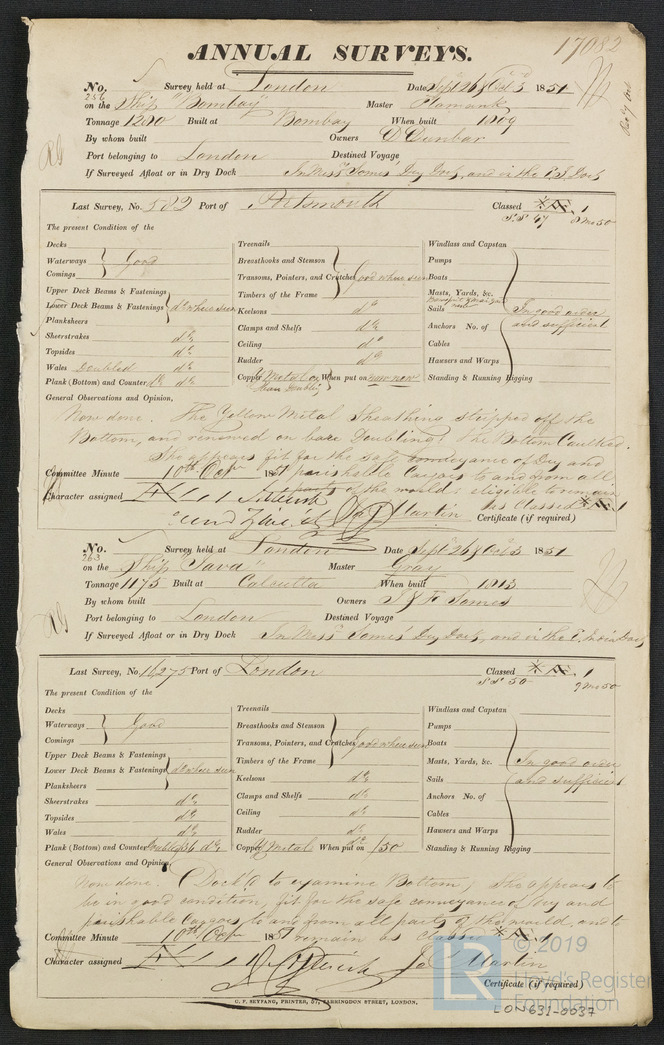 17082
ANNUAL SURVEYS.
No. 256 Survey held at London Date Sept 26 & Oct 3 1851
on the Ship "Bombay" Master Flamank
Tonnage 1280 Built at Bombay When built 1809
By whom built Owners D Dunbar
Port belonging to London Destined Voyage
If Surveyed Afloat or in Dry Dock In Messrs Somes Dry Dock, and in the E. I. Dock
Last Survey, No. 582 Port of Portsmouth Classed Æ 1
S.S. 47 8 Mo 50
The present Condition of the
Decks
Waterways Good
Comings
Upper Deck Beams & Fastenings
Lower Deck Beams & Fastenings do where seen
Planksheers
Sheerstrakes do
Topsides do
Wales Doubled do
Plank (Bottom) and Counter do do
Treenails
Breasthooks and Stemson
Transoms, Pointers, and Crutches Good where seen
Timbers of the Frame
Keelsons do
Clamps and Shelfs do
Ceiling do
Rudder do
Copper Y Metal on When put on now new
Windlass and Capstan
Pumps
Boats
Masts, Yards, &c.
Sails In good order
Anchors No. of and sufficient
Cables
Hawsers and Warps
Standing & Running Rigging
General Observations and Opinion,
Now done. The Yellow Metal Sheathing stripped off the
Bottom, and renewed on bare Doubling. The Bottom Caulked.
She appears fit for the safe conveyance of Dry and
Committee Minute 10th Octr 1851 perishable Cargoes to and from all
parts of the world: eligible to remain
Character assigned Æ 1 as Classed Æ 1
Jas Martin Certificate (if required)
No. 263 Survey held at London Date Sept 26 & Oct 3 1851
on the Ship "Java" Master Gray
Tonnage 1175 Built at Calcutta When built 1813
By whom built Owners J & F Somes
Port belonging to London Destined Voyage
If Surveyed Afloat or in Dry Dock In Messrs Somes Dry Dock, and in the E. India Dock
Last Survey, No. 16275 Port of London Classed Æ 1
S.S. 50 9 Mo 50
The present Condition of the
Decks
Waterways Good
Comings
Upper Deck Beams & Fastenings
Lower Deck Beams & Fastenings do where seen
Planksheers
Sheerstrakes do
Topsides do
Wales do
Plank (Bottom) and Counter Doubled 36 do
Treenails
Breasthooks and Stemson
Transoms, Pointers, and Crutches Good where seen
Timbers of the Frame
Keelsons do
Clamps and Shelfs do
Ceiling do
Rudder do
Copper Y Metal When put on /50
Windlass and Capstan
Pumps
Boats
Masts, Yards, &c. In good order
Sails and sufficient
Anchors No. of
Cables
Hawsers and Warps
Standing & Running Rigging
General Observations and Opinion,
Now done. Dock'd to examine Bottom, She appears to
be in good condition, fit for the safe conveyance of Dry and
perishable Cargoes to and from all parts of the world, and to
Committee Minute 10th Octr 1851 remain as Classed Æ 1
Character assigned Æ 1 Jas Martin
Certificate (if required)
C. F. SEYFANG, PRINTER, 57, FARRINGDON STREET, LONDON.
LON631-0037
© 2019
LR Lloyd's Register
Foundation